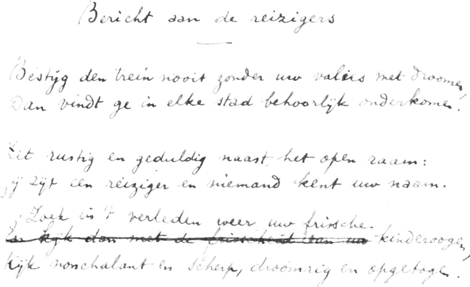 Bericht aan de reizigers
Bestijg den trein nooit zonder uw valies met droomen,
dan vindt ge in elke stad behoorlijk onderkomen.
Zit rustig en geduldig naast het open raam:
gij zijt een reiziger en niemand kent uw naam.
Zoek in 't verleden weer uw frissche
en kijk dan met de frischheid van uw kinderoogen,
kijk nonchalant en scherp, droomrig en opgetogen.